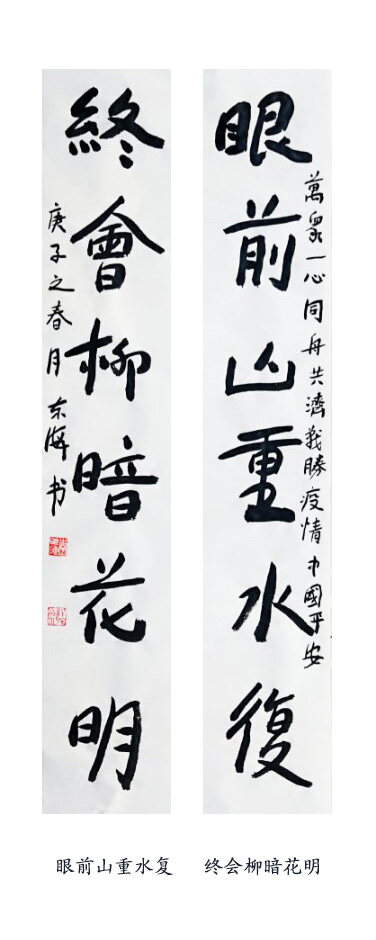 眼前山重水復
萬眾一心同舟共濟戰勝疫情中國平安
終會柳暗花明
庚子之春月东海书
眼前山重水复 终会柳暗花明